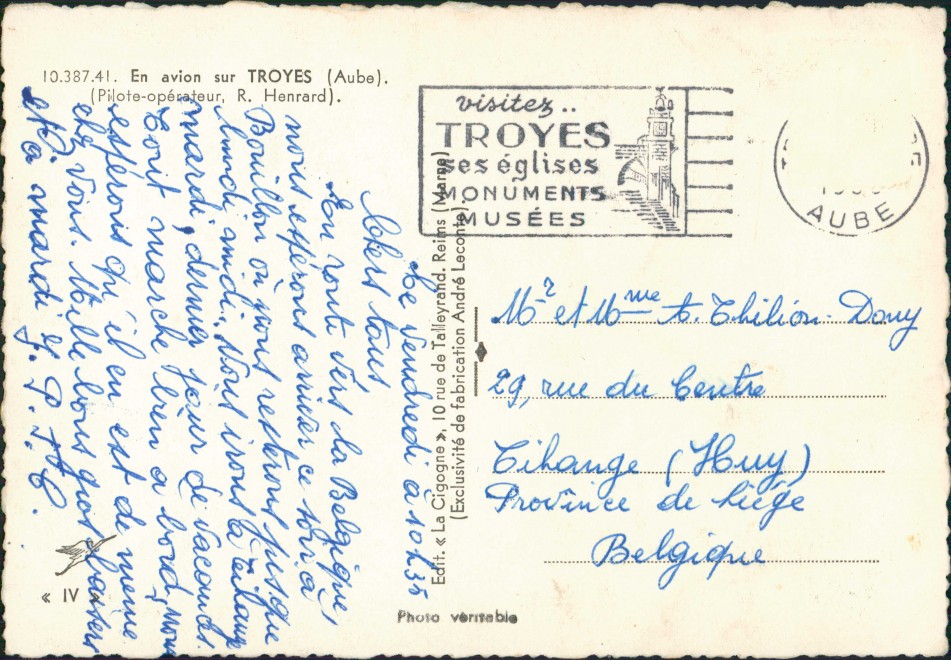 10.387.41. En avion sur TROYES (Aube).
(Pilote-opérateur, R. Henrard).
visitez..
TROYES
ses églises
MONUMENTS
MUSÉES
AUBE
Le Vendredi à 10h35
Chers tous
En route vers la Belgique,
nous espérons arriver ce soir à
Bouillon où nous resterons jusque
lundi midi. Nous irons à
mardi, dernier jour de vacances.
Tout marche bien à bord, nous
espérons qu'il en est de même
chez vous. Mille bons gros baisers
et à mardi. J. P. H. C.
Edit. « La Cigogne », 10 rue de Talleyrand. Reims (Marne)
(Exclusivité de fabrication André Leconte
Mr et Mme A. Thilion-Dony
29, rue du Centre
Tihange (Huy)
Province de Liège
Belgique
« IV »
Photo véritable